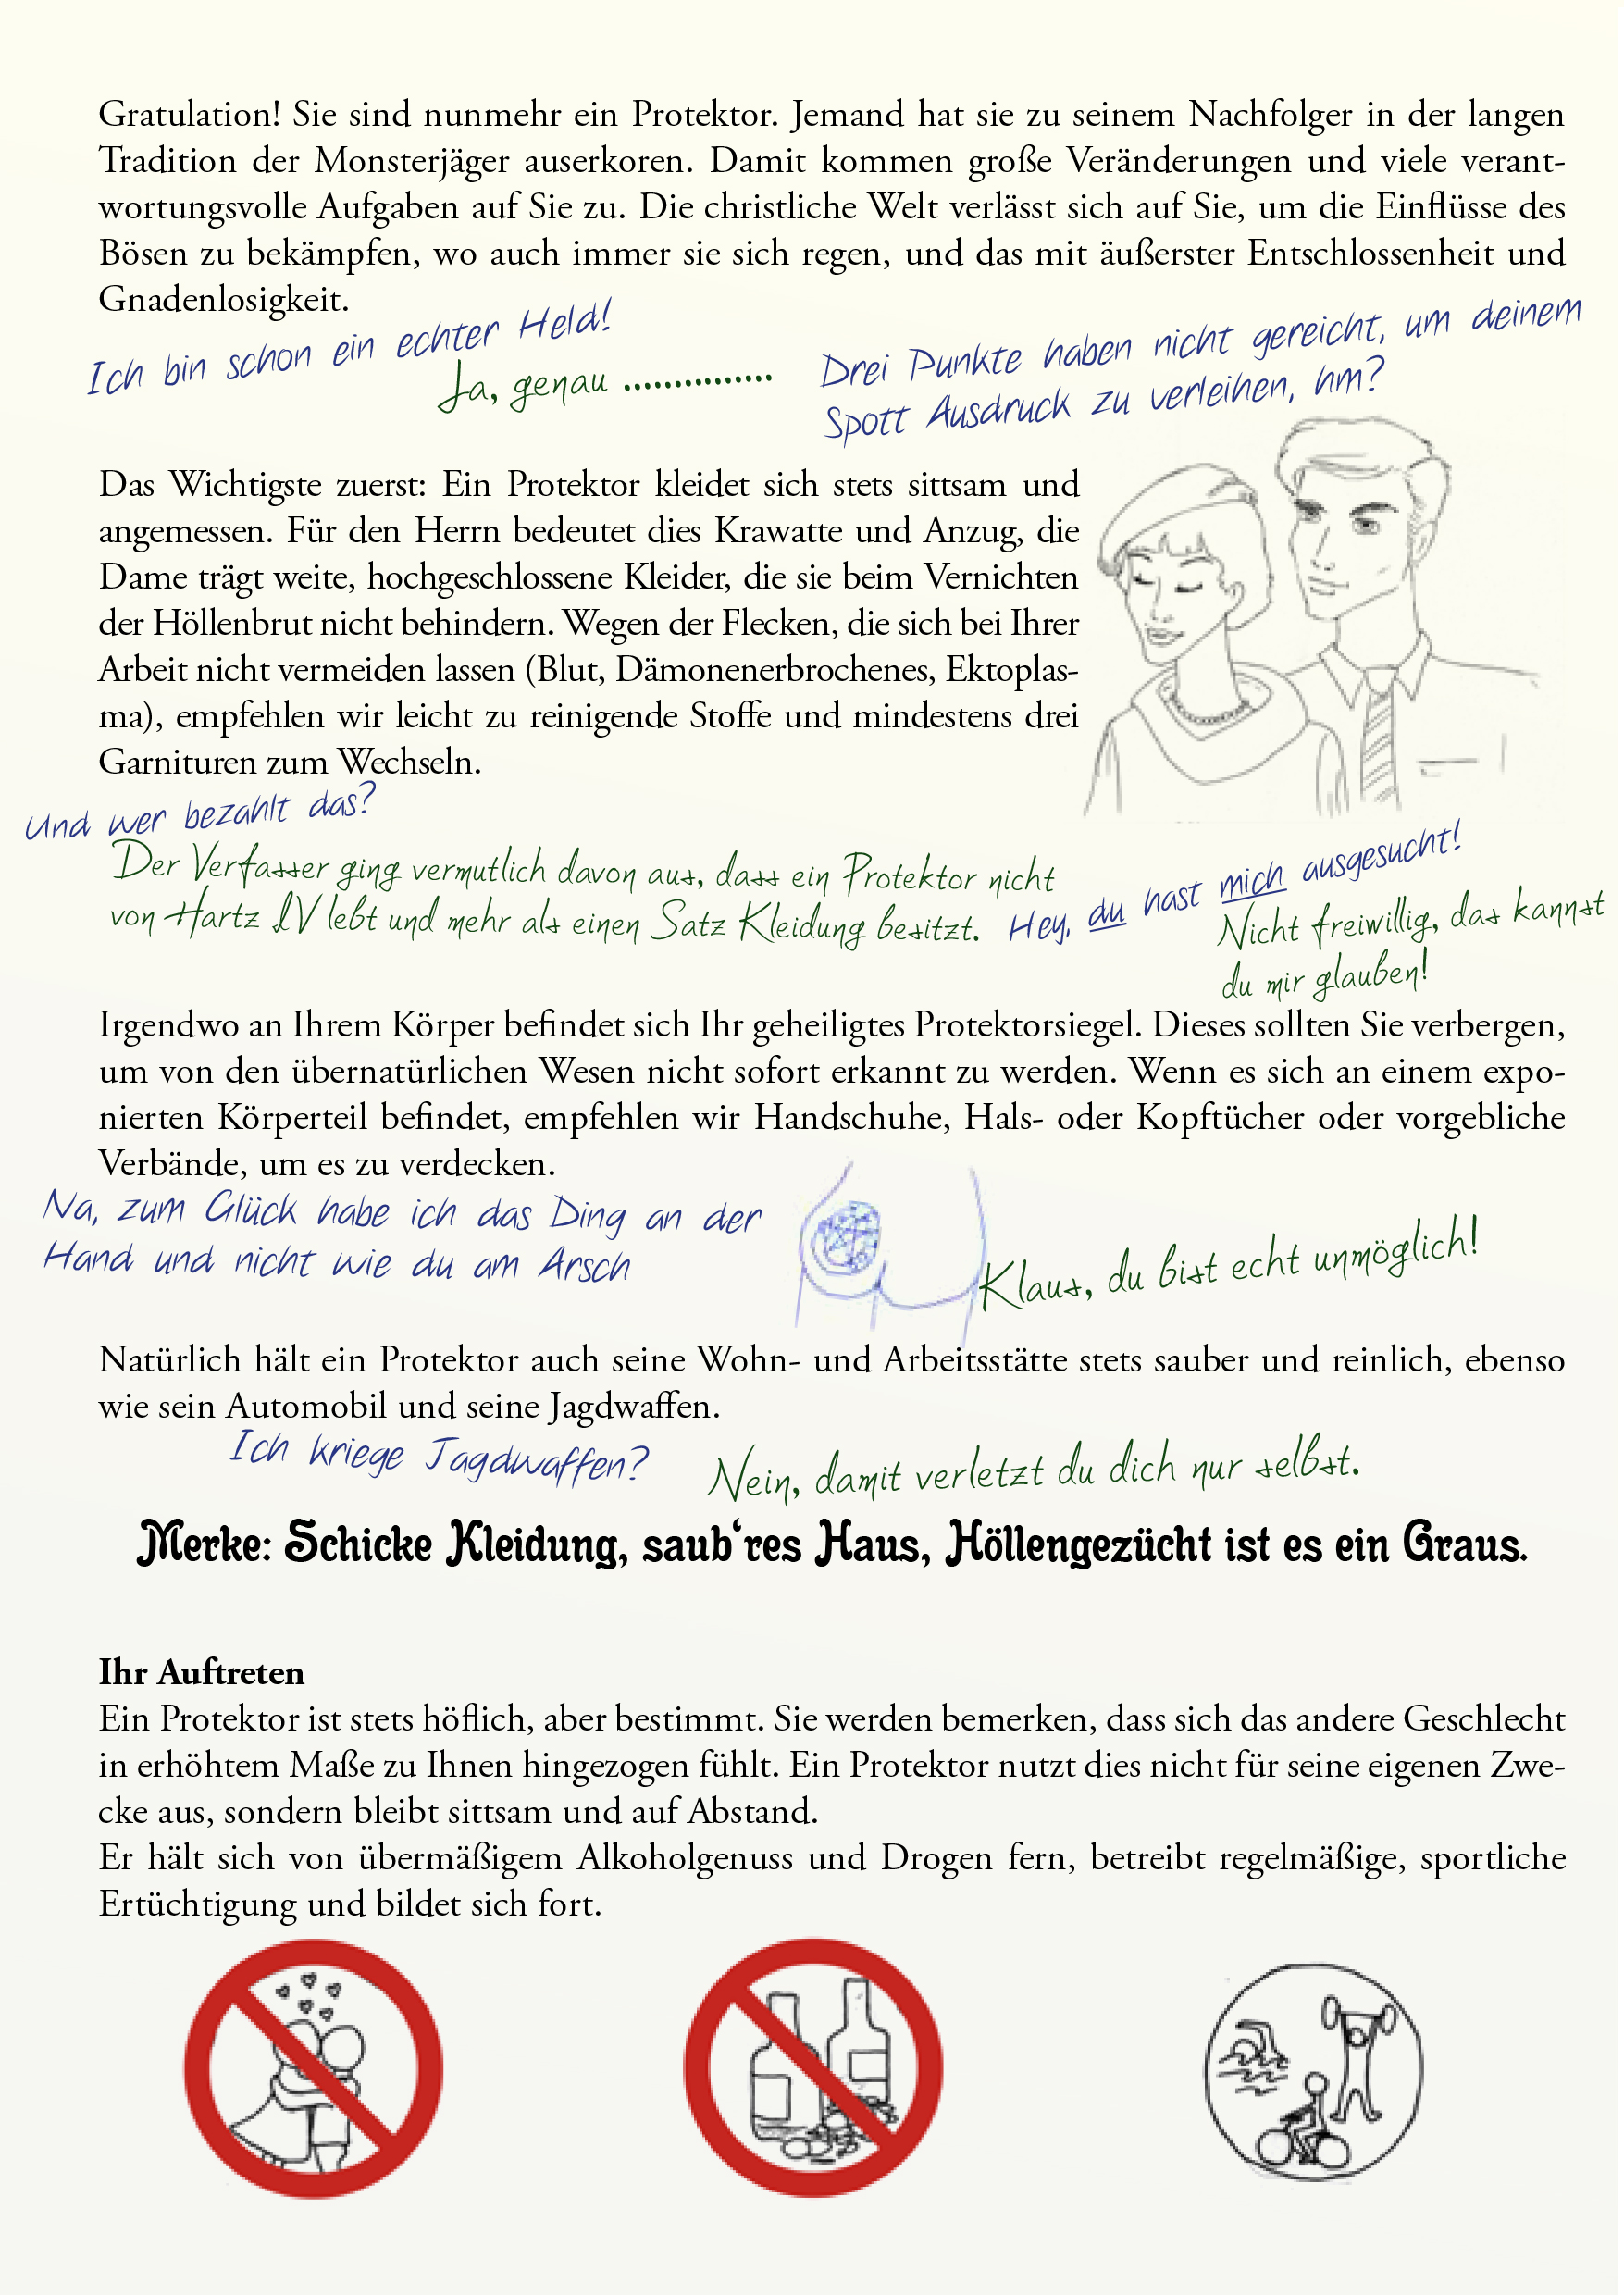 Gratulation! Sie sind nunmehr ein Protektor. Jemand hat sie zu seinem Nachfolger in der langen
Tradition der Monsterjäger auserkoren. Damit kommen große Veränderungen und viele verant-
wortungsvolle Aufgaben auf Sie zu. Die christliche Welt verlässt sich auf Sie, um die Einflüsse des
Bösen zu bekämpfen, wo auch immer sie sich regen, und das mit äußerster Entschlossenheit und
Gnadenlosigkeit.
Ich bin schon ein echter Held!
Ja, genau ...............
Drei Punkte haben nicht gereicht, um deinem
Spott Ausdruck zu verleihen, hm?
Das Wichtigste zuerst: Ein Protektor kleidet sich stets sittsam und
angemessen. Für den Herrn bedeutet dies Krawatte und Anzug, die
Dame trägt weite, hochgeschlossene Kleider, die sie beim Vernichten
der Höllenbrut nicht behindern. Wegen der Flecken, die sich bei Ihrer
Arbeit nicht vermeiden lassen (Blut, Dämonenerbrochenes, Ektoplas-
ma), empfehlen wir leicht zu reinigende Stoffe und mindestens drei
Garnituren zum Wechseln.
Und wer bezahlt das?
Der Verfasser ging vermutlich davon aus, dass ein Protektor nicht
von Hartz IV lebt und mehr als einen Satz Kleidung besitzt.
Hey, du hast mich ausgesucht!
Nicht freiwillig, das kannst
du mir glauben!
Irgendwo an Ihrem Körper befindet sich Ihr geheiligtes Protektorsiegel. Dieses sollten Sie verbergen,
um von den übernatürlichen Wesen nicht sofort erkannt zu werden. Wenn es sich an einem expo-
nierten Körperteil befindet, empfehlen wir Handschuhe, Hals- oder Kopftücher oder vorgebliche
Verbände, um es zu verdecken.
Na, zum Glück habe ich das Ding an der
Hand und nicht wie du am Arsch
Klaus, du bist echt unmöglich!
Natürlich hält ein Protektor auch seine Wohn- und Arbeitsstätte stets sauber und reinlich, ebenso
wie sein Automobil und seine Jagdwaffen.
Ich kriege Jagdwaffen?
Nein, damit verletzt du dich nur selbst.
Merke: Schicke Kleidung, saub‘res Haus, Höllengezücht ist es ein Graus.
Ihr Auftreten
Ein Protektor ist stets höflich, aber bestimmt. Sie werden bemerken, dass sich das andere Geschlecht
in erhöhtem Maße zu Ihnen hingezogen fühlt. Ein Protektor nutzt dies nicht für seine eigenen Zwe-
cke aus, sondern bleibt sittsam und auf Abstand.
Er hält sich von übermäßigem Alkoholgenuss und Drogen fern, betreibt regelmäßige, sportliche
Ertüchtigung und bildet sich fort.